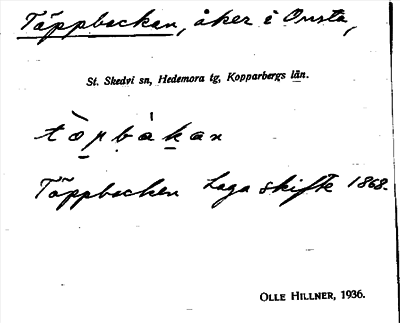 Täppbackan, åker i Onsta,
St. Skedvi sn, Hedemora tg, Kopparbergs län.
tòpbàkan
Täppbacken Laga skifte 1868.
OLLE HILLNER, 1936.